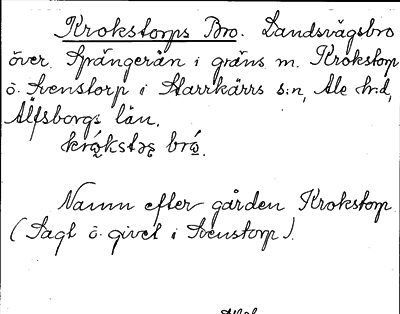 Krokstorps Bro. Landsvägsbro
över Sprängerån i gräns m. Krokstorp
o. Svenstorp i Starrkärrs s:n, Ale h:d,
Älfsborgs län.
bro.
Namn efter gården Krokstorp
(Sagt o. givet i Svenstorp).